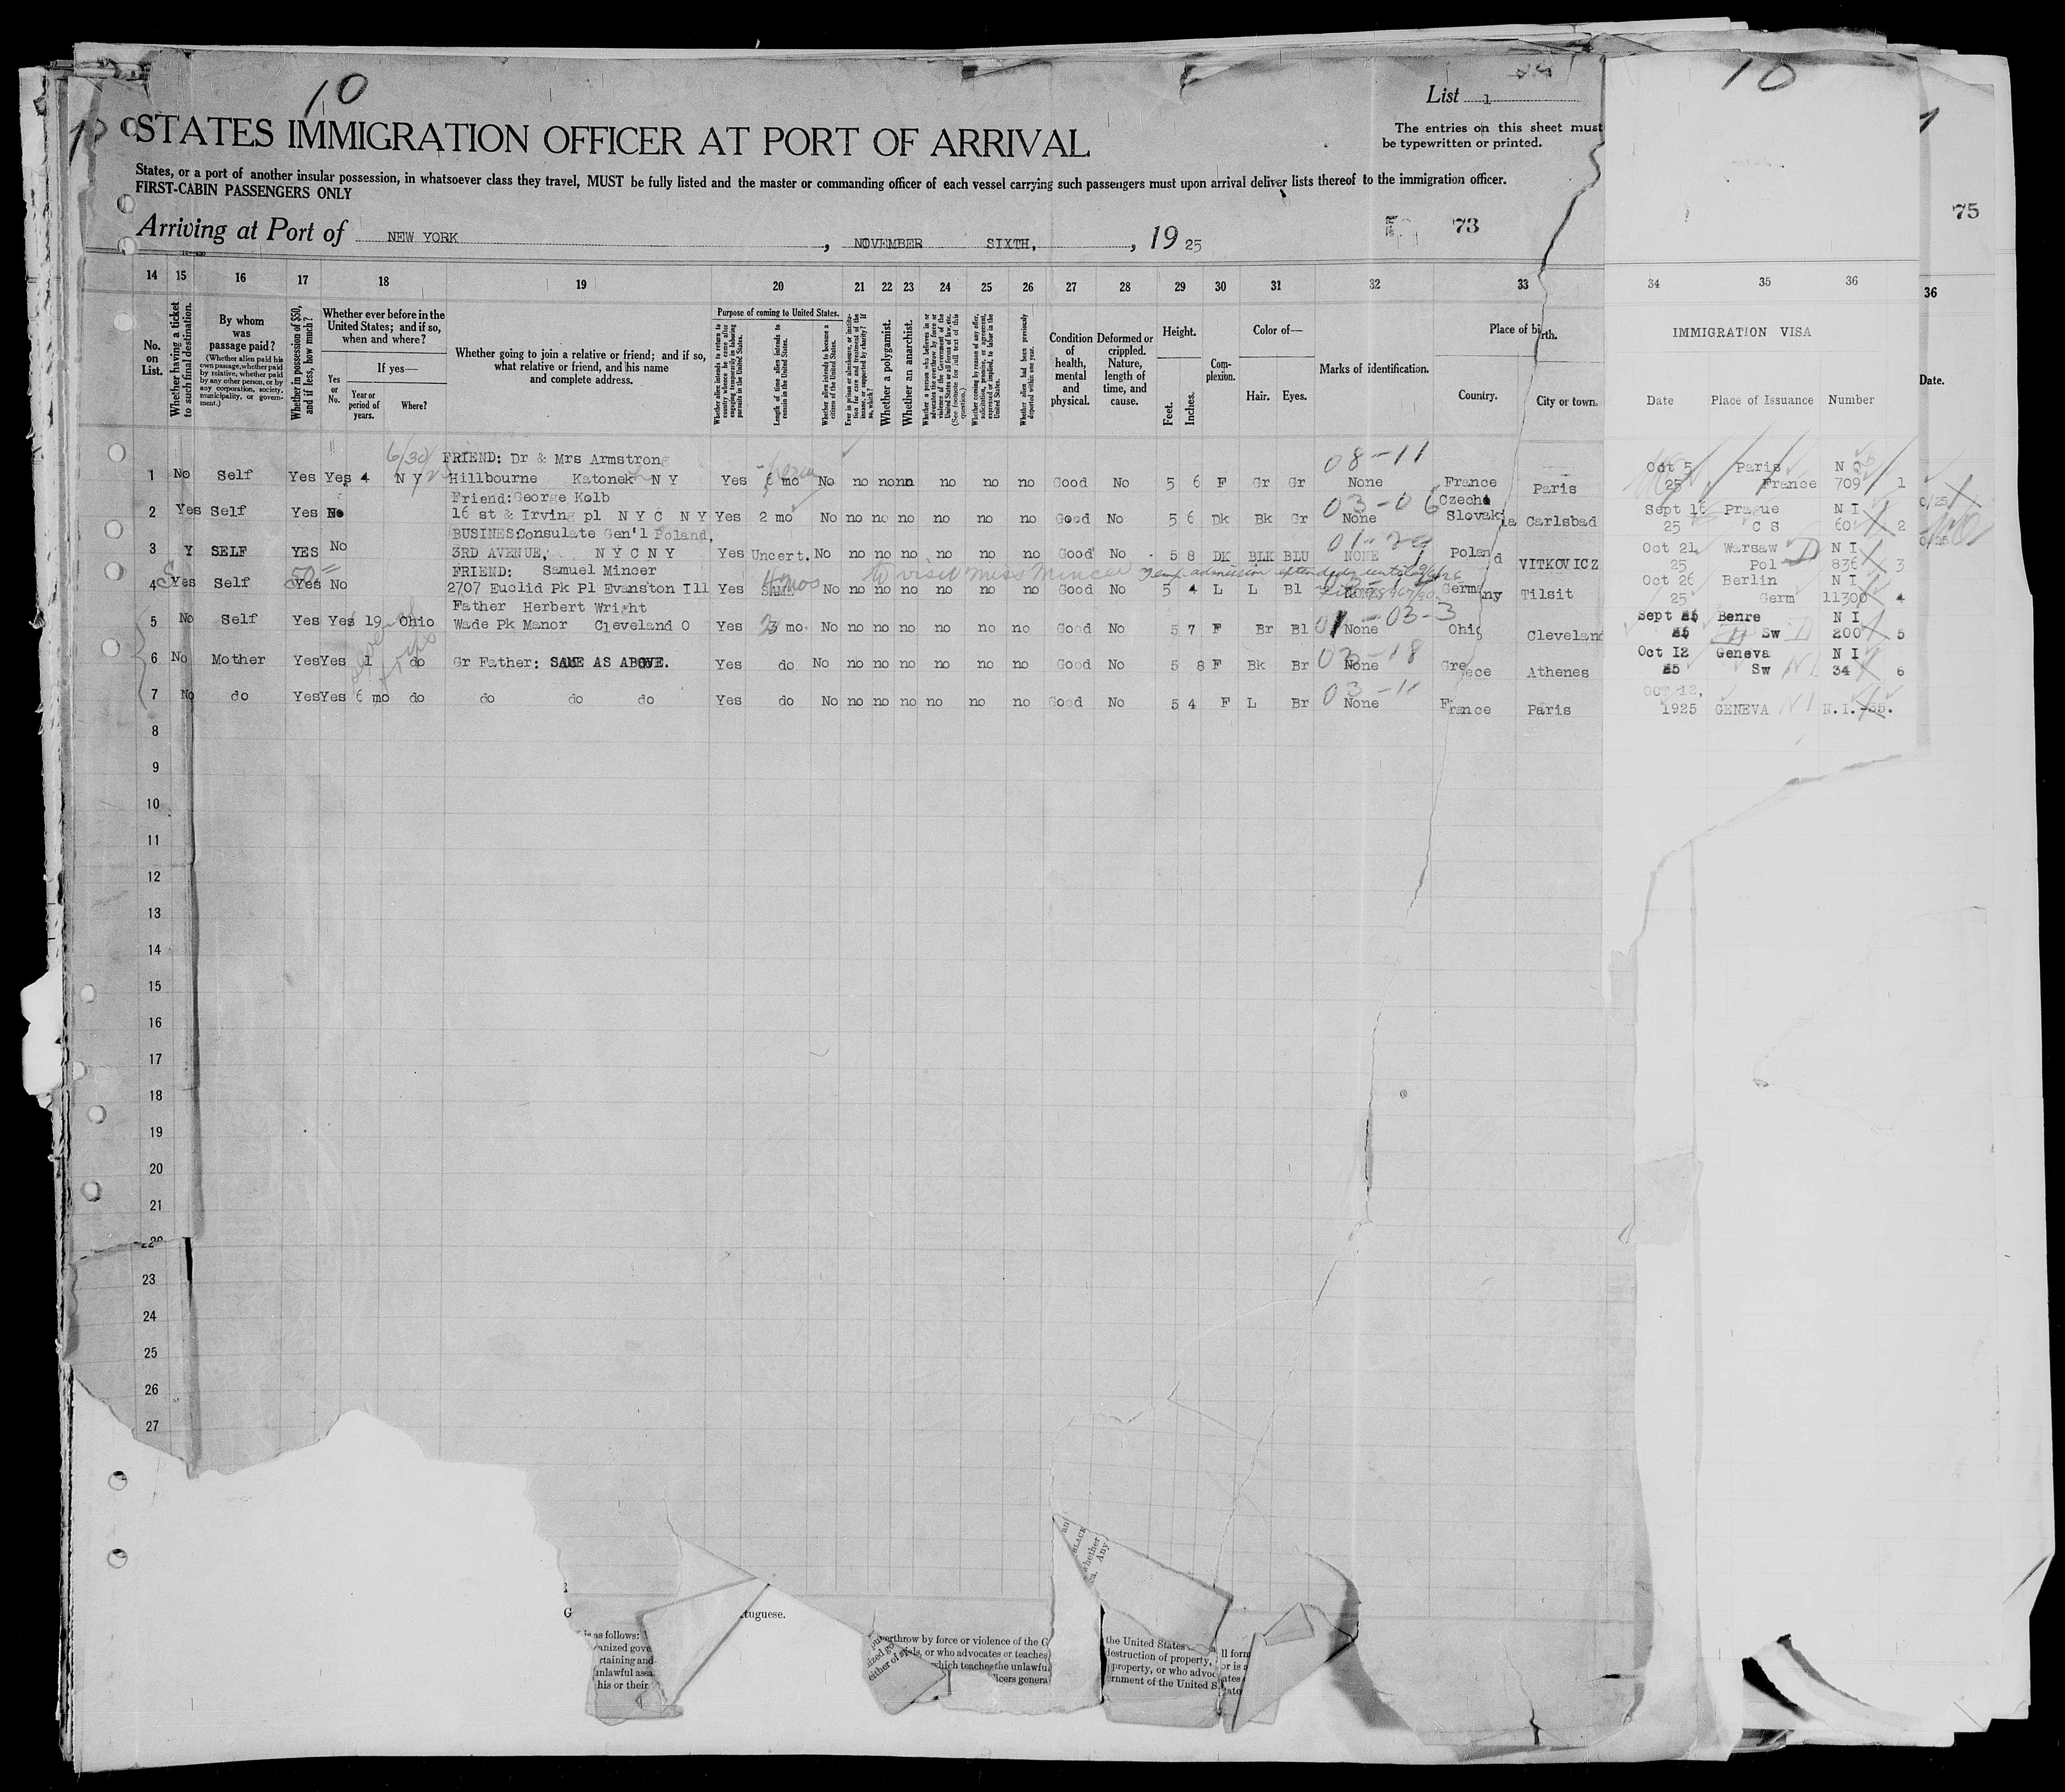 10
10
List 1
STATES IMMIGRATION OFFICER AT PORT OF ARRIVAL
The entries on this sheet must
be typewritten or printed.
States, or a port of another insular possession, in whatsoever class they travel, MUST be fully listed and the master or commanding officer of each vessel carrying such passengers must upon arrival deliver lists thereof to the immigration officer.
FIRST-CABIN PASSENGERS ONLY
Arriving at Port of NEW YORK, NOVEMBER SIXTH, , 19 25
73
75
14 15 16 17 18 19 20 21 22 23 24 25 26 27 28 29 30 31 32 33 34 35 36
36
No. on List.
Whether having a ticket to such final destination.
By whom was passage paid?
(Whether alien paid his own passage, whether paid by relative, whether paid by any other person, or by any corporation, society, municipality, or government.)
Whether in possession of $50, and if less, how much?
Whether ever before in the United States; and if so, when and where?
Yes or No.
If yes—
Year or period of years.
Where?
Whether going to join a relative or friend; and if so, what relative or friend, and his name and complete address.
Purpose of coming to United States.
Whether alien intends to return to country whence he came after engaging temporarily in laboring pursuits in the United States.
Length of time alien intends to remain in the United States.
Whether alien intends to become a citizen of the United States.
Ever in prison or almshouse, or institution for care and treatment of the insane, or supported by charity? If so, which?
Whether a polygamist.
Whether an anarchist.
Whether a person who believes in or advocates the overthrow by force or violence of the Government of the United States or all forms of law, etc. (See footnote for full text of this question.)
Whether coming by reason of any offer, solicitation, promise, or agreement, expressed or implied, to labor in the United States.
Whether alien had been previously deported within one year.
Condition of health, mental and physical.
Deformed or crippled. Nature, length of time, and cause.
Height.
Feet. Inches.
Complexion.
Color of—
Hair. Eyes.
Marks of identification.
Place of birth.
Country. City or town.
IMMIGRATION VISA
Date Place of Issuance Number
Date.
6/30 FRIEND: Dr & Mrs Armstrong 08-11 Oct 5 Paris N Q
1 No Self Yes Yes 4 N Y Hillbourne Katonek N Y Yes 6 mo No no no no no no no Good No 5 6 F Gr Gr None France Paris 25 France 709 1
Friend: George Kolb 03-06 Czecho Sept 16 Prague N I
2 Yes Self Yes No 16 st & Irving pl N Y C N Y Yes 2 mo No no no no no no no Good No 5 6 Dk Bk Gr None Slovakia Carlsbad 25 C S 60 2
BUSINES: Consulate Gen'l Poland, Oct 21 Warsaw N I
3 Y SELF YES No 3RD AVENUE, N Y C N Y Yes Uncert. No no no no no no no Good No 5 8 DK BLK BLU NONE Poland VITKOWICZ 25 Pol 836 3
50 FRIEND: Samuel Mincer 4 mos to visit Miss Mincer Temp. admission extended until Oct 26 Berlin N I
4 Yes Self Yes No 2707 Euclid Pk Pl Evanston Ill Yes SAME No no no no no no no Good No 5 4 L L Bl Germany Tilsit 25 Germ 11300 4
Father Herbert Wright 01-03-3 Sept Benre N I
5 No Self Yes Yes 19 Ohio Wade Pk Manor Cleveland O Yes 3 mo No no no no no no no Good No 5 7 F Br Bl None Ohio Cleveland 25 Sw 200 5
03-18 Oct 12 Geneva N I
6 No Mother Yes Yes 1 do Gr Father: SAME AS ABOVE. Yes do No no no no no no no Good No 5 8 F Bk Br None Greece Athenes 25 Sw 34 6
03-11 OCT 12,
7 No do Yes Yes 6 mo do do do do Yes do No no no no no no no Good No 5 4 F L Br None France Paris 1925 GENEVA N.I.-35.
8
9
10
11
12
13
14
15
16
17
18
19
20
21
22
23
24
25
26
27
tuguese.
is as follows:
anized gove
rtaining and
unlawful assa
his or their
verthrow by force or violence of the G
als, or who advocates or teaches
which teaches the unlawfu
ficers genera
the United States
destruction of property,
property, or who advoc
ernment of the United S
ll form
or is a
ates
tate
BLACK
whether
Any